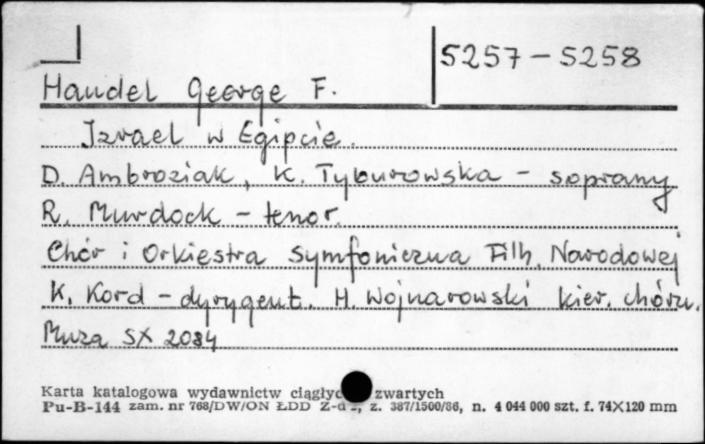 5257 - 5258
Handel George F.
Izrael w Egipcie.
D. Ambroziak, K. Tyburowska - soprany
R. Murdock - tenor.
Chór i Orkiestra Symfoniczna Filh. Narodowej
K. Kord - dyrygent. H. Wojnarowski kier. chóru.
Muza SX 2084
Karta katalogowa wydawnictw zwartych
Pu-B-144 zam. nr 768/DW/ON ŁDD z. 387/1500/86, n. 4 044 000 szt. f. 74X120 mm